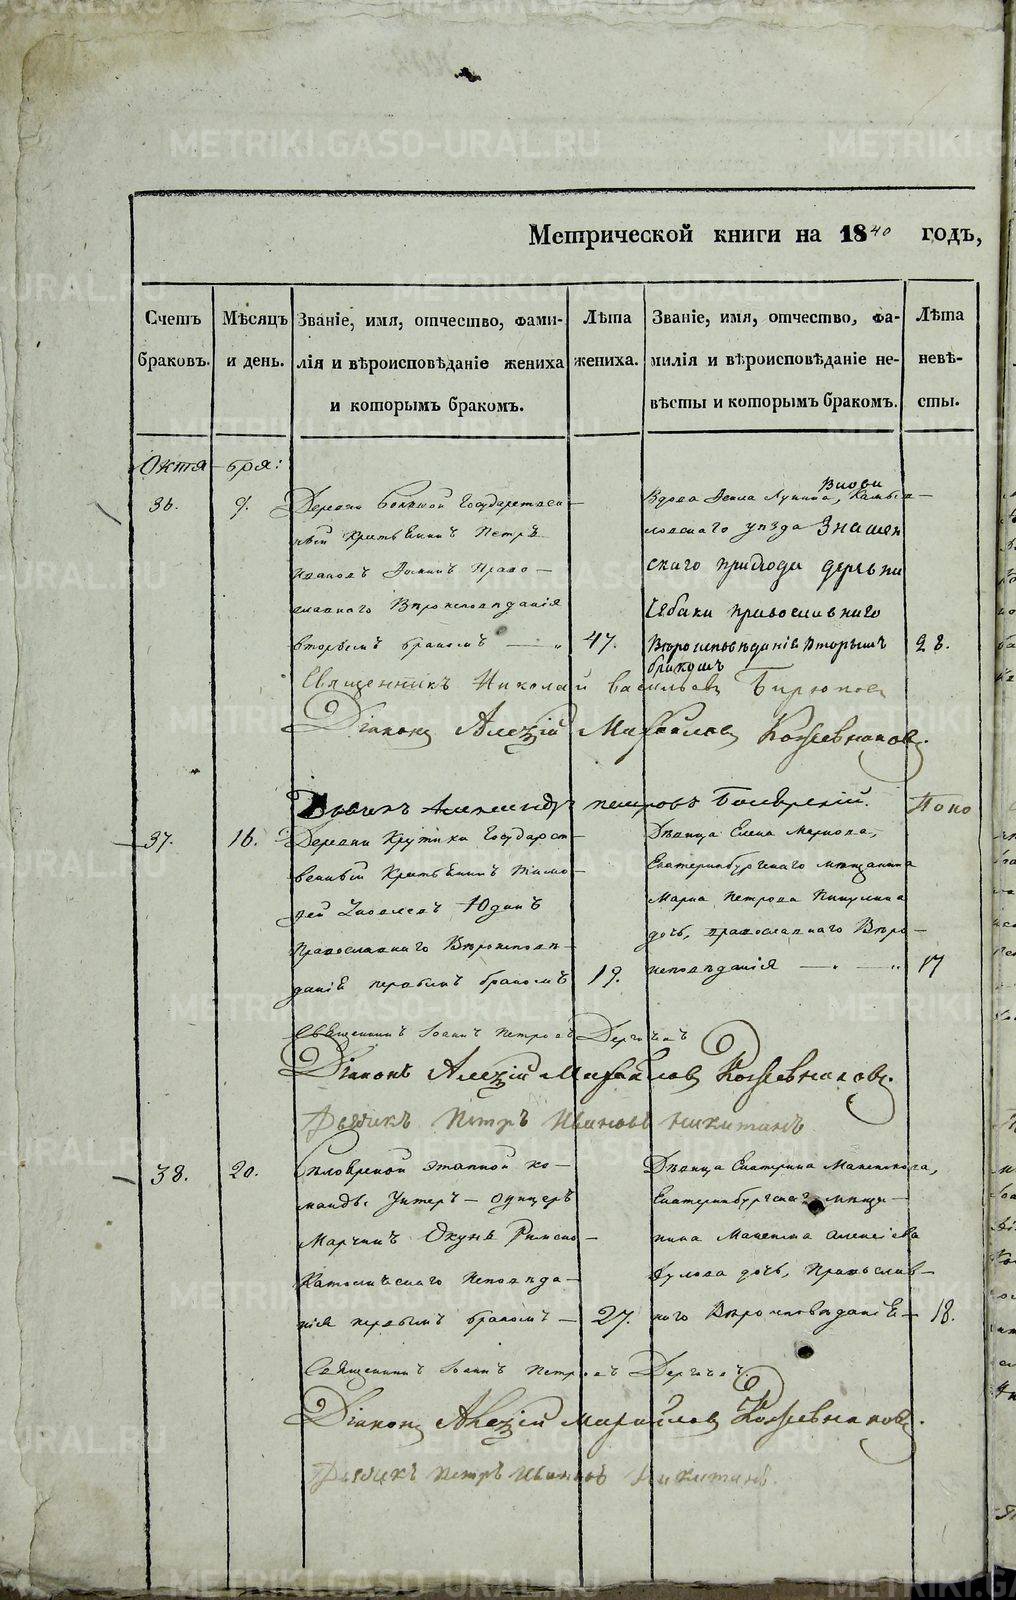 METRIKI.GASO-URAL.RU
Метрической книги на 1840 годъ,
Счетъ браковъ.
Мѣсяцъ и день.
Званіе, имя, отчество, фами-
лія и вѣроисповѣданіе жениха
и которымъ бракомъ.
Лѣта жениха.
Званіе, имя, отчество, фа-
милія и вѣроисповѣданіе не-
вѣсты и которымъ бракомъ.
Лѣта невѣ-
сты.
Октя-бря:
36.
9.
Деревни Государствен-
ный Крестьянинъ Петръ
Ивановъ Право-
славнаго Вѣроисповѣданія
вторымъ бракомъ
47.
Вдова Камыш-
ловскаго уѣзда Знамен
скаго прихода деревни
православнаго
Вѣроисповѣданія вторымъ
бракомъ
28.
Священникъ Николай Васильевъ Бирюковъ
Діаконъ Алексій Михайловъ Кожевниковъ.
Дьячекъ Александръ Петровъ
37.
16.
Деревни Крутихи Государст-
венный Крестьянинъ Тимо-
фей Яковлевъ Юдинъ
Православнаго Вѣроисповѣ-
данія первымъ бракомъ
19.
Дѣвица Елена Маркова,
Екатеринбургскаго мѣщанина
Марка Петрова Пичугина
дочь, православнаго Вѣро-
исповѣданія
17
Священникъ Іоаннъ Петровъ Дергачевъ
Діаконъ Алексій Михайловъ Кожевниковъ.
Дьячекъ Петръ Ивановъ Никитинъ
38.
20.
этапной ко-
манды Унтеръ-офицеръ
Марчинъ Окунь Римско-
Католическаго Исповѣда-
нія первымъ бракомъ
27.
Дѣвица Екатерина
Екатеринбургскаго мѣща-
нина Алексѣева
дочь, Православ-
наго Вѣроисповѣданія
18.
Священникъ Іоаннъ Петровъ Дергачевъ
Діаконъ Алексій Михайловъ Кожевниковъ.
Дьячекъ Петръ Ивановъ Никитинъ.